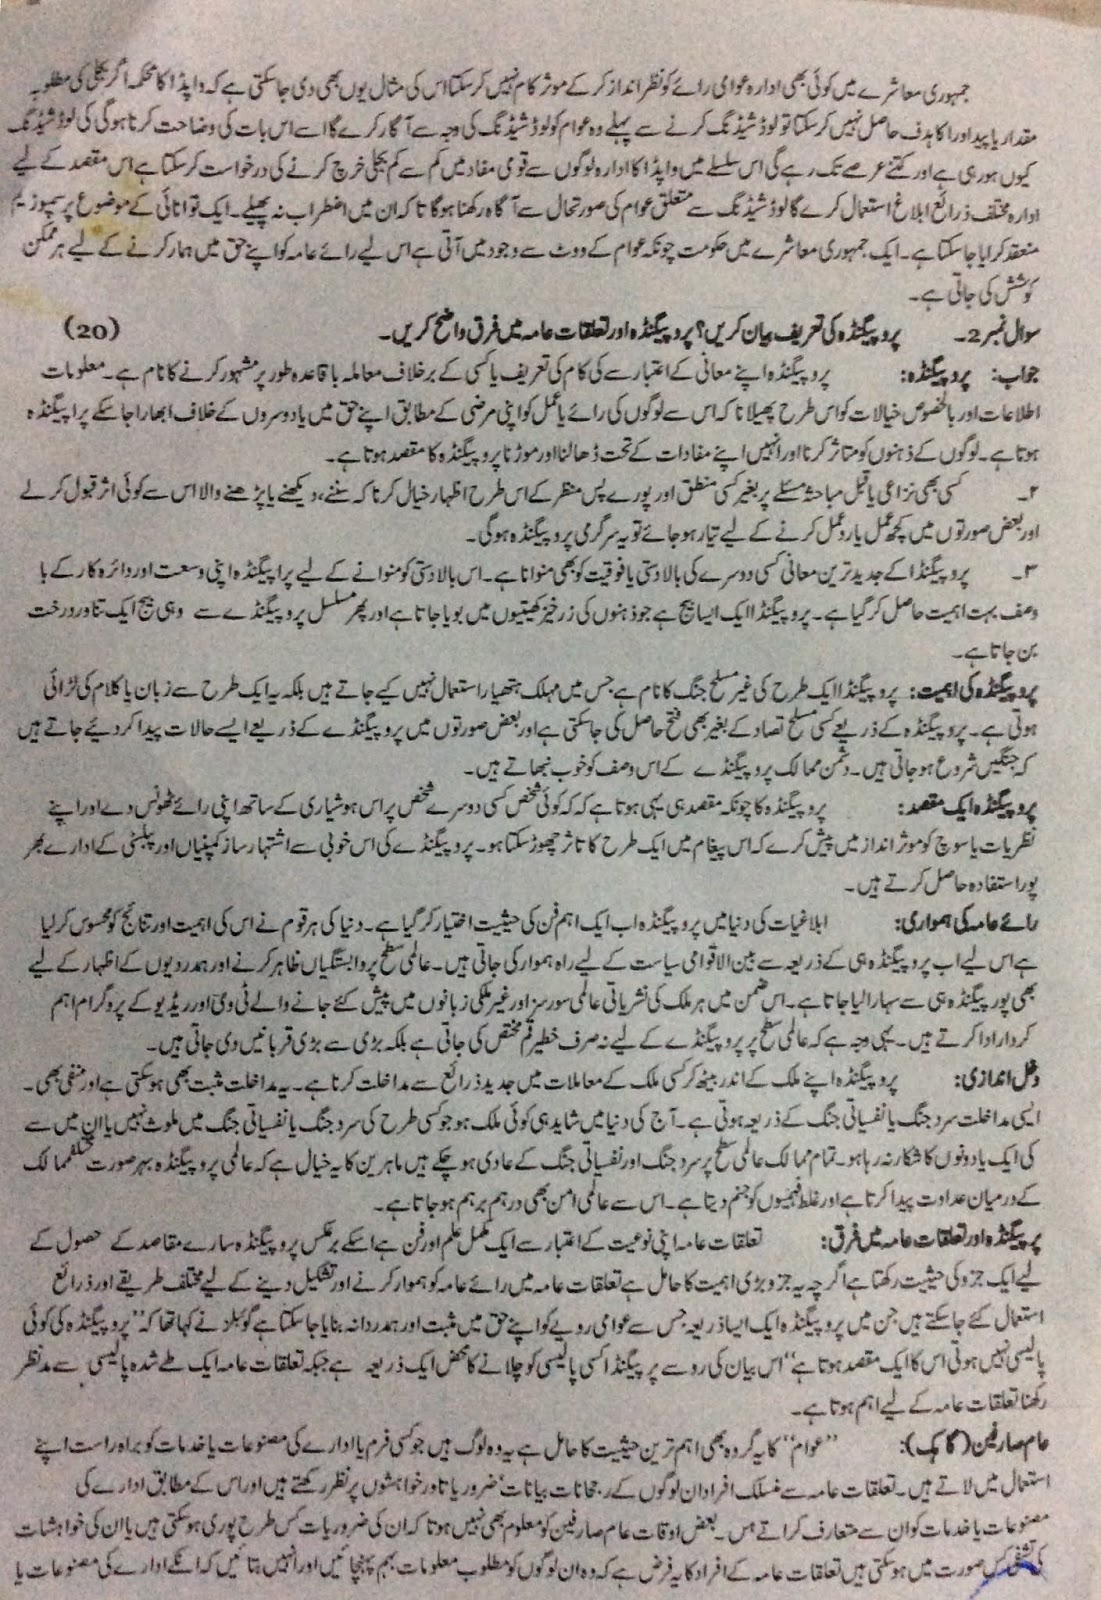 جمہوری معاشرے میں کوئی بھی ادارہ عوامی رائے کو نظر انداز کر کے موثر کام نہیں کر سکتا اس کی مثال یوں بھی دی جا سکتی ہے کہ واپڈا کا محکمہ اگر بجلی کی مطلوبہ
مقدار یا پیداوار کا ہدف حاصل نہیں کر سکتا تو لوڈ شیڈنگ کرنے سے پہلے وہ عوام کو لوڈ شیڈنگ کی وجہ سے آگاہ کرے گا اسے اس بات کی وضاحت کرنا ہوگی کی لوڈ شیڈنگ
کیوں ہو رہی ہے اور کتنے عرصے تک رہے گی اس سلسلے میں واپڈا کا ادارہ لوگوں سے قومی مفاد میں کم سے کم بجلی خرچ کرنے کی درخواست کر سکتا ہے اس مقصد کے لیے
ادارہ مختلف ذرائع ابلاغ استعمال کرے گا لوڈ شیڈنگ سے متعلق عوام کی صورتحال سے آگاہ رکھنا ہوگا تاکہ ان میں اضطراب نہ پھیلے۔ ایک توانائی کے موضوع پر سمپوزیم
منعقد کرایا جا سکتا ہے۔ ایک جمہوری معاشرے میں حکومت چونکہ عوام کے ووٹ سے وجود میں آتی ہے اس لیے رائے عامہ کو اپنے حق میں ہمار کرنے کے لیے ہر ممکن
کوشش کی جاتی ہے۔
سوال نمبر 2۔ پروپیگنڈہ کی تعریف بیان کریں؟ پروپیگنڈہ اور تعلقات عامہ میں فرق واضح کریں۔ (20)
جواب: پروپیگنڈہ: پروپیگنڈہ اپنے معانی کے اعتبار سے کی کام کی تعریف یا کسی کے برخلاف معاملہ باقاعدہ طور پر مشہور کرنے کا نام ہے۔ معلومات
اطلاعات اور بالخصوص خیالات کو اس طرح پھیلانا کہ اس سے لوگوں کی رائے یا عمل کو اپنی مرضی کے مطابق اپنے حق میں یا دوسروں کے خلاف ابھارا جا سکے پراپیگنڈہ
ہوتا ہے۔ لوگوں کے ذہنوں کو متاثر کرنا اور انہیں اپنے مفادات کے تحت ڈھالنا اور موڑنا پروپیگنڈہ کا مقصد ہوتا ہے۔
۲۔ کسی بھی نزاعی یا قبل مباحثہ مسئلے پر بغیر کسی منطق اور پورے پس منظر کے اس طرح اظہار خیال کرنا کہ سننے، دیکھنے یا پڑھنے والا اس سے کوئی اثر قبول کر لے
اور بعض صورتوں میں کچھ عمل یا رد عمل کرنے کے لیے تیار ہو جائے تو یہ سرگرمی پروپیگنڈہ ہوگی۔
۳۔ پروپیگنڈا کے جدید ترین معانی کسی دوسرے کی بالادستی یا فوقیت کو بھی منوانا ہے۔ اس بالا دستی کو منوانے کے لیے پراپیگنڈہ اپنی وسعت اور دائرہ کار کے با
وصف بہت اہمیت حاصل کر گیا ہے۔ پروپیگنڈا ایک ایسا بیج ہے جو ذہنوں کی زرخیز کھیتیوں میں بویا جاتا ہے اور پھر مسلسل پروپیگنڈے سے وہی بیج ایک تناور درخت
بن جاتا ہے۔
پروپیگنڈہ کی اہمیت: پروپیگنڈا ایک طرح کی غیر مسلح جنگ کا نام ہے جس میں مہلک ہتھیار استعمال نہیں کیے جاتے ہیں بلکہ یہ ایک طرح سے زبان یا کلام کی لڑائی
ہوتی ہے۔ پروپیگنڈہ کے ذریعے کسی مسلح تصاد کے بغیر بھی فتح حاصل کی جا سکتی ہے اور بعض صورتوں میں پروپیگنڈے کے ذریعے ایسے حالات پیدا کر دئیے جاتے ہیں
کہ جنگیں شروع ہو جاتی ہیں۔ دشمن ممالک پروپیگنڈے کے اس وصف کو خوب نبھاتے ہیں۔
پروپیگنڈہ ایک مقصد: پروپیگنڈہ کا چونکہ مقصد ہی یہی ہوتا ہے کہ کہ کوئی شخص کسی دوسرے شخص پر اس ہوشیاری کے ساتھ اپنی رائے ٹھونس دے اور اپنے
نظریات یا سوچ کو موثر انداز میں پیش کرے کہ اس پیغام میں ایک طرح کا تاثر چھوڑ سکتا ہو۔ پروپیگنڈے کی اس خوبی سے اشتہار ساز کمپنیاں اور پبلسٹی کے ادارے بھر
پور استفادہ حاصل کرتے ہیں۔
رائے عامہ کی ہمواری: ابلاغیات کی دنیا میں پروپیگنڈہ اب ایک اہم فن کی حیثیت اختیار کر گیا ہے۔ دنیا کی ہر قوم نے اس کی اہمیت اور نتائج کو محسوس کر لیا
ہے اس لیے اب پروپیگنڈہ ہی کے ذریعہ سے بین الاقوامی سیاست کے لیے راہ ہموار کی جاتی ہیں۔ عالمی سطح پر وابستگیاں ظاہر کرنے اور ہمدردیوں کے اظہار کے لیے
بھی پورپیگنڈہ ہی سے سہارا لیا جاتا ہے۔ اس ضمن میں ہر ملک کی نشریاتی عالمی سورسز اور غیر ملکی زبانوں میں پیش کئے جانے والے ٹی وی اور ریڈیو کے پروگرام اہم
کردار ادا کرتے ہیں۔ یہی وجہ ہے کہ عالمی سطح پر پروپیگنڈے کے لیے نہ صرف خطیر رقم مختص کی جاتی ہے بلکہ بڑی سے بڑی قربانیں دی جاتی ہیں۔
دخل اندازی: پروپیگنڈہ اپنے ملک کے اندر بیٹھ کر کسی ملک کے معاملات میں جدید ذرائع سے مداخلت کرنا ہے۔ یہ مداخلت مثبت بھی ہو سکتی ہے اور منفی بھی۔
ایسی مداخلت سرد جنگ یا نفسیاتی جنگ کے ذریعہ ہوتی ہے۔ آج کی دنیا میں شاید ہی کوئی ملک ہو جو کسی طرح کی سرد جنگ یا نفسیاتی جنگ میں ملوث نہیں یا ان میں سے
کی ایک یا دونوں کا شکار نہ رہا ہو۔ تمام ممالک عالمی سطح پر سرد جنگ اور نفسیاتی جنگ کے عادی ہو چکے ہیں ماہرین کا یہ خیال ہے کہ عالمی پروپیگنڈہ بہر صورت مختلف ممالک
کے درمیان عداوت پیدا کرتا ہے اور غلط فہمیوں کو جنم دیتا ہے۔ اس سے عالمی امن بھی درہم برہم ہو جاتا ہے۔
پرپیگنڈہ اور تعلقات عامہ میں فرق: تعلقات عامہ اپنی نوعیت کے اعتبار سے ایک مکمل علم اور فن ہے اسکے برعکس پروپیگنڈہ سارے مقاصد کے حصول کے
لیے ایک جزو کی حیثیت رکھتا ہے اگرچہ یہ جزو بڑی اہمیت کا حامل ہے تعلقات عامہ میں رائے عامہ کو ہموار کرنے اور تشکیل دینے کے لیے مختلف طریقے اور ذرائع
استعمال کئے جا سکتے ہیں جن میں پروپیگنڈہ ایک ایسا ذریعہ جس سے عوامی رویے کو اپنے حق میں مثبت اور ہمدردانہ بنایا جا سکتا ہے گوئبلز نے کہا تھا کہ "پروپیگنڈہ کی کوئی
پالیسی نہیں ہوتی اس کا ایک مقصد ہوتا ہے" اس بیان کی رو سے پرپیگنڈا کسی پالیسی کو چلانے کا محض ایک ذریعہ ہے جبکہ تعلقات عامہ ایک طے شدہ پالیسی سے مدنظر
رکھنا تعلقات عامہ کے لیے اہم ہوتا ہے۔
عام صارفین (گاہک): "عوام" کا یہ گروہ بھی اہم ترین حیثیت کا حامل ہے یہ وہ لوگ ہیں جو کسی فرم یا ادارے کی مصنوعات یا خدمات کو براہ راست اپنے
استعمال میں لاتے ہیں۔ تعلقات عامہ سے منسلک افراد ان لوگوں کے رجحانات بیانات ضروریات اور خواہشوں پر نظر رکھتے ہیں اور اس کے مطابق ادارے کی
مصنوعات یا خدمات کو ان سے متعارف کراتے ہیں۔ بعض اوقات عام صارفین کو معلوم بھی نہیں ہوتا کہ ان کی ضروریات کس طرح پوری ہو سکتی ہیں یا ان کی خواہشات
کی تشفی کس صورت میں ہو سکتی ہیں تعلقات عامہ کے افراد کا یہ فرض ہے کہ وہ ان لوگوں کو مطلوبہ معلومات بہم پہنچائیں اور انہیں بتائیں کہ انکے ادارے کی مصنوعات یا